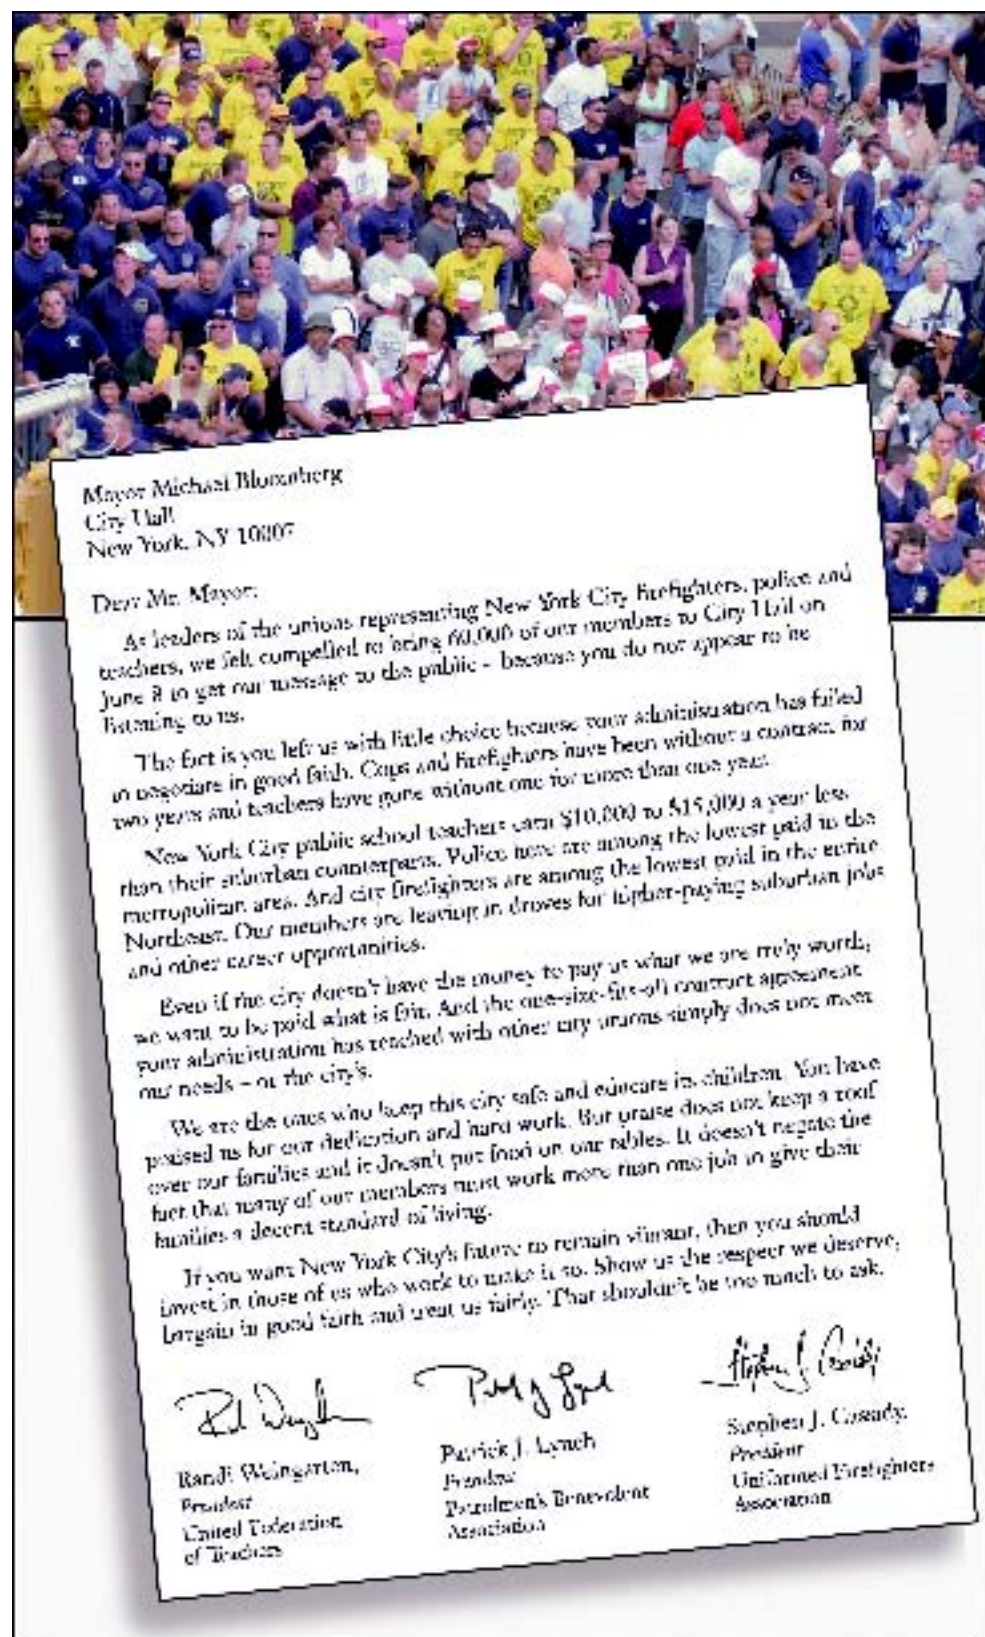 Mayor Michael Bloomberg
City Hall
New York, NY 10007
Dear Mr. Mayor:
As leaders of the unions representing New York City firefighters, police and
teachers, we felt compelled to bring 60,000 of our members to City Hall on
June 8 to get our message to the public – because you do not appear to be
listening to us.
The fact is you left us with little choice because your administration has failed
to negotiate in good faith. Cops and firefighters have been without a contract for
two years and teachers have gone without one for more than one year.
New York City public school teachers earn $10,000 to $15,000 a year less
than their suburban counterparts. Police here are among the lowest paid in the
metropolitan area. And city firefighters are among the lowest paid in the entire
Northeast. Our members are leaving in droves for higher-paying suburban jobs
and other career opportunities.
Even if the city doesn't have the money to pay us what we are truly worth,
we want to be paid what is fair. And the one-size-fits-all contract agreement
your administration has reached with other city unions simply does not meet
our needs – or the city's.
We are the ones who keep this city safe and educate its children. You have
praised us for our dedication and hard work. But praise does not keep a roof
over our families and it doesn't put food on our tables. It doesn't negate the
fact that many of our members must work more than one job to give their
families a decent standard of living.
If you want New York City's future to remain vibrant, then you should
invest in those of us who work to make it so. Show us the respect we deserve,
bargain in good faith and treat us fairly. That shouldn't be too much to ask.
Randi Weingarten,
President
United Federation
of Teachers
Patrick J. Lynch
President
Patrolmen's Benevolent
Association
Stephen J. Cassidy,
President
Uniformed Firefighters
Association